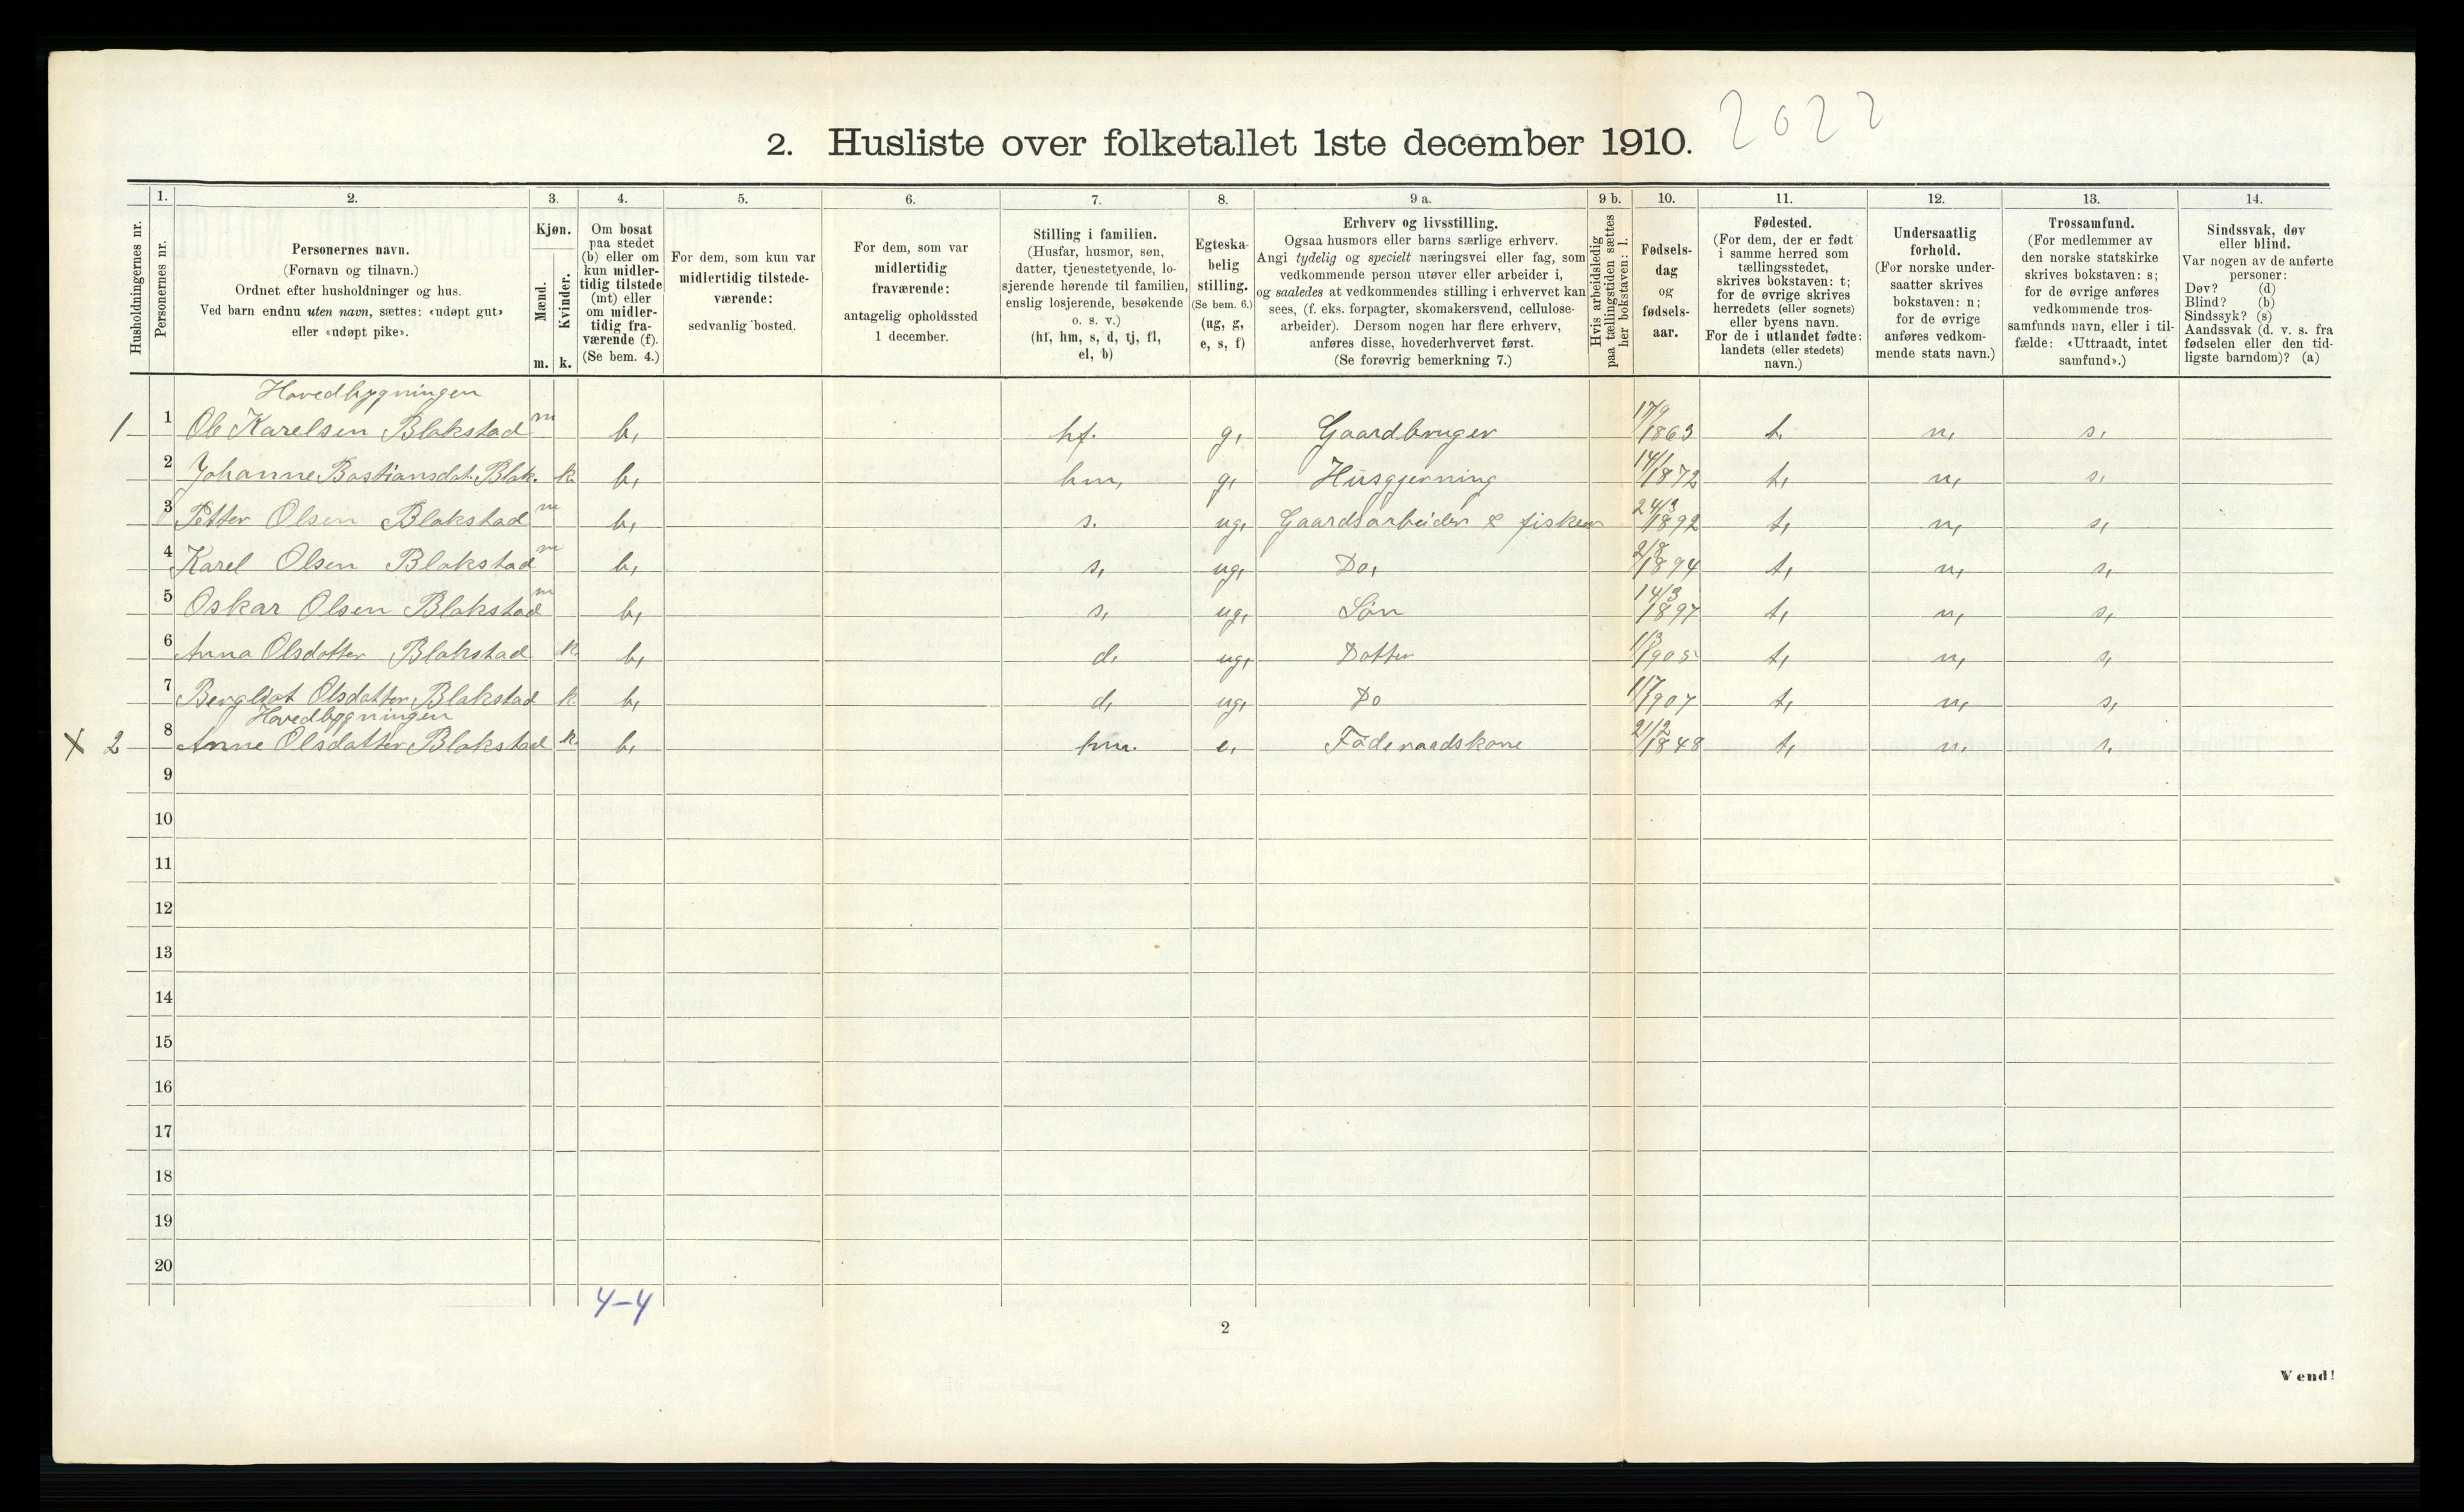 2022
2. Husliste over folketallet 1ste december 1910.
Husholdningernes nr.
1. Personernes nr.
2. Personernes navn. (Fornavn og tilnavn.) Ordnet efter husholdninger og hus. Ved barn endnu uten navn, sættes: «udøpt gut» eller «udøpt pike».
3. Kjøn. Mænd. m. Kvinder. k.
4. Om bosat paa stedet (b) eller om kun midlertidig tilstede (mt) eller om midlertidig fraværende (f). (Se bem. 4.)
5. For dem, som kun var midlertidig tilstedeværende: sedvanlig bosted.
6. For dem, som var midlertidig fraværende: antagelig opholdssted 1 december.
7. Stilling i familien. (Husfar, husmor, søn, datter, tjenestetyende, losjerende hørende til familien, enslig losjerende, besøkende o. s. v.) (hf, hm, s, d, tj, fl, el, b)
8. Egteskabelig stilling. (Se bem. 6.) (ug, g, e, s, f)
9 a. Erhverv og livsstilling. Ogsaa husmors eller barns særlige erhverv. Angi tydelig og specielt næringsvei eller fag, som vedkommende person utøver eller arbeider i, og saaledes at vedkommendes stilling i erhvervet kan sees, (f. eks. forpagter, skomakersvend, cellulosearbeider). Dersom nogen har flere erhverv, anføres disse, hovederhvervet først. (Se forøvrig bemerkning 7.)
9 b. Hvis arbeidsledig paa tællingstiden sættes her bokstaven: l.
10. Fødselsdag og fødselsaar.
11. Fødested. (For dem, der er født i samme herred som tællingsstedet, skrives bokstaven: t; for de øvrige skrives herredets (eller sognets) eller byens navn. For de i utlandet fødte: landets (eller stedets) navn.)
12. Undersaatlig forhold. (For norske undersaatter skrives bokstaven: n; for de øvrige anføres vedkommende stats navn.)
13. Trossamfund. (For medlemmer av den norske statskirke skrives bokstaven: s; for de øvrige anføres vedkommende trossamfunds navn, eller i tilfælde: «Uttraadt, intet samfund».)
14. Sindssvak, døv eller blind. Var nogen av de anførte personer: Døv? (d) Blind? (b) Sindssyk? (s) Aandssvak (d. v. s. fra fødselen eller den tidligste barndom)? (a)
Hovedbygningen
1 1 Ole Karelsen Blakstad m b, hf. g, Gaardbruger 17/9 1863 t. n, s,
2 Johanne Bastiansdat. Blak. k. b, hm, g, Husgjerning 14/1 1872 t, n, s,
3 Petter Olsen Blakstad m b, s. ug, Gaardsarbeider & fisker 24/3 1892 t, n, s,
4 Karel Olsen Blakstad m b, s, ug, Do, 2/8 1894 t, n, s,
5 Oskar Olsen Blakstad m b, s, ug, Søn 14/3 1897 t, n, s,
6 Anna Olsdatter Blakstad k. b, d. ug, Datter 1/3 1905 t, n, s,
7 Bergliot Olsdatter Blakstad k. b, d, ug, Do 1/7 1907 t, n, s,
Hovedbygningen
X 2 8 Anne Olsdatter Blakstad k. b, hm. e, Føderaadskone 21/2 1848 t, n, s,
9
10
11
12
13
14
15
16
17
18
19
20
4-4
2
Vend!